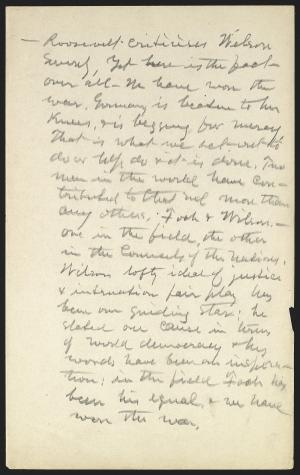 — Roosevelt criticises Wilson
Yet here is the fact —
over all — We have won the
war. Germany is beaten to her
knees, & is begging for mercy.
That is what we set out to
do or help do & it is done. Two
men in the world have con-
tributed to that end more than
any others. Foch & Wilson. —
one in the field, the other
in the Councils of the nations.
Wilson lofty ideal of justice
& internation fair play has
been our guiding star; he
stated our cause in terms
of world democracy & his
words have been an inspira-
tion; in the field Foch has
been his equal & we have
won the war.